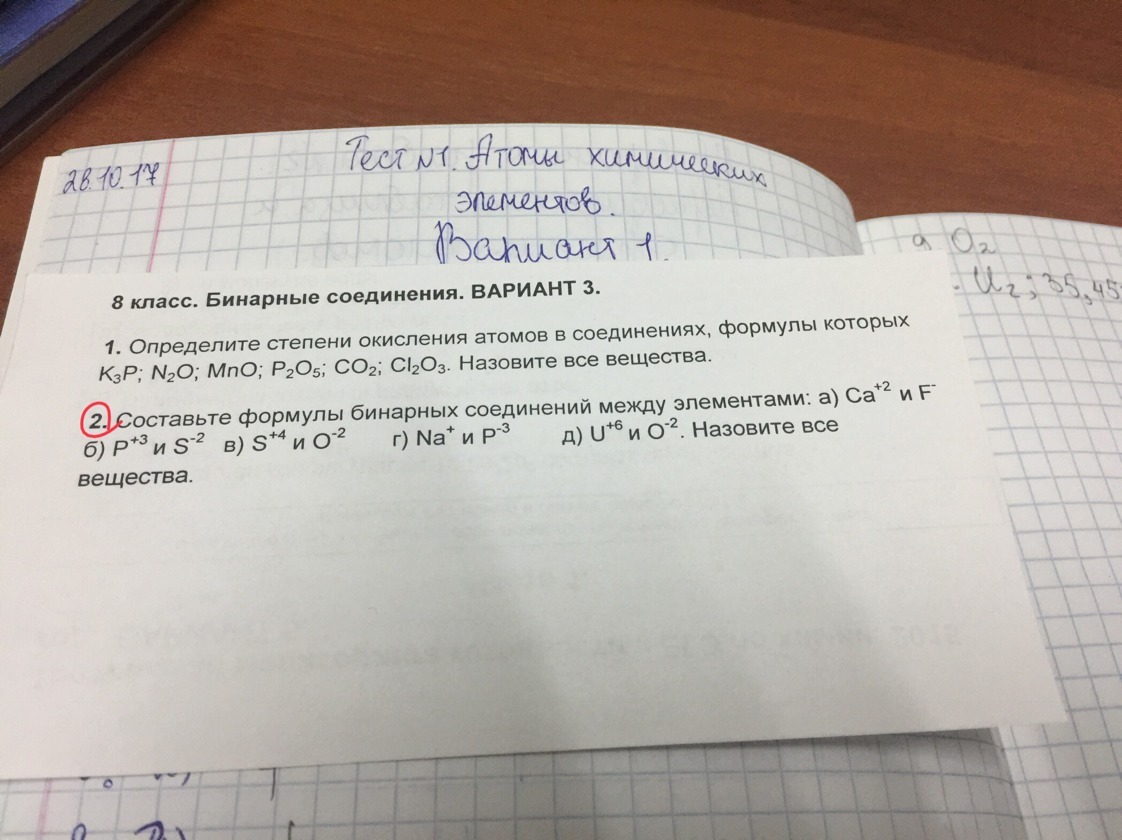 28.10.17
Тест №1. Атомы химических
элементов.
Вариант 1.
9 O₂
8 класс. Бинарные соединения. ВАРИАНТ 3.
1. Определите степени окисления атомов в соединениях, формулы которых
K₃P; N₂O; MnO; P₂O₅; CO₂; Cl₂O₃. Назовите все вещества.
2. Составьте формулы бинарных соединений между элементами: а) Ca⁺² и F⁻
б) P⁺³ и S⁻² в) S⁺⁴ и O⁻² г) Na⁺ и P⁻³ д) U⁺⁶ и O⁻². Назовите все
вещества.